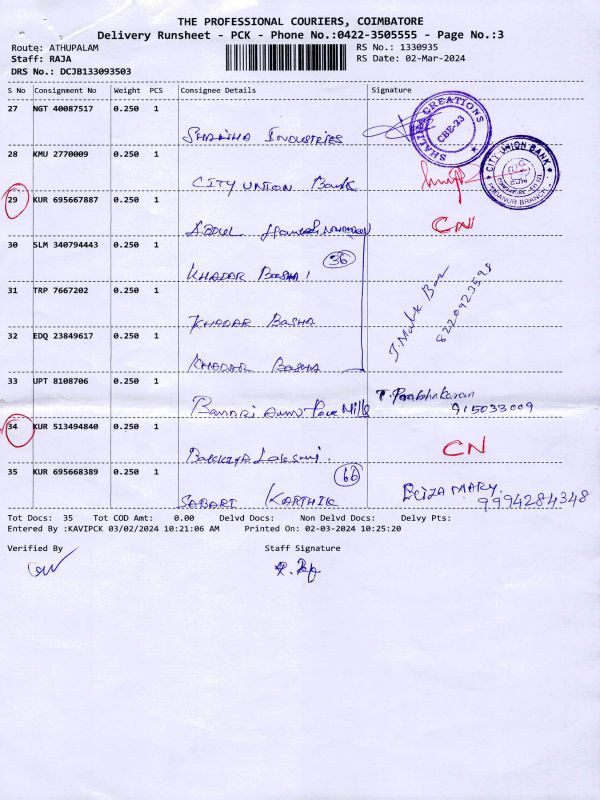 THE PROFESSIONAL COURIERS, COIMBATORE
Delivery Runsheet - PCK - Phone No.:0422-3505555 - Page No.:3
Route: ATHUPALAM
RS No.: 1330935
Staff: RAJA
RS Date: 02-Mar-2024
DRS No.: DCJB133093503
S No Consignment No Weight PCS Consignee Details Signature
27 NGT 40087517 0.250 1
SHALIHA INDUSTRIES
SHALIHA CREATIONS
CBE-23
28 KMU 2770009 0.250 1
CITY UNION Bank
CITY UNION BANK
29 KUR 695667887 0.250 1
ABDUL
CN
30 SLM 340794443 0.250 1
36
KHADAR BASHA
31 TRP 7667202 0.250 1
KHADAR BASHA
J. Malik
8220923598
32 EDQ 23849617 0.250 1
KHADAR BASHA
33 UPT 8108706 0.250 1
Banari Mills
T. Prabhakaran
915033009
34 KUR 513494840 0.250 1
BAKKIYA LAKSMI.
CN
35 KUR 695668389 0.250 1
66
SABARI KARTHIK
ELIZA MARY.
9994284348
Tot Docs: 35 Tot COD Amt: 0.00 Delvd Docs: Non Delvd Docs: Delvy Pts:
Entered By :KAVIPCK 03/02/2024 10:21:06 AM Printed On: 02-03-2024 10:25:20
Verified By
Staff Signature